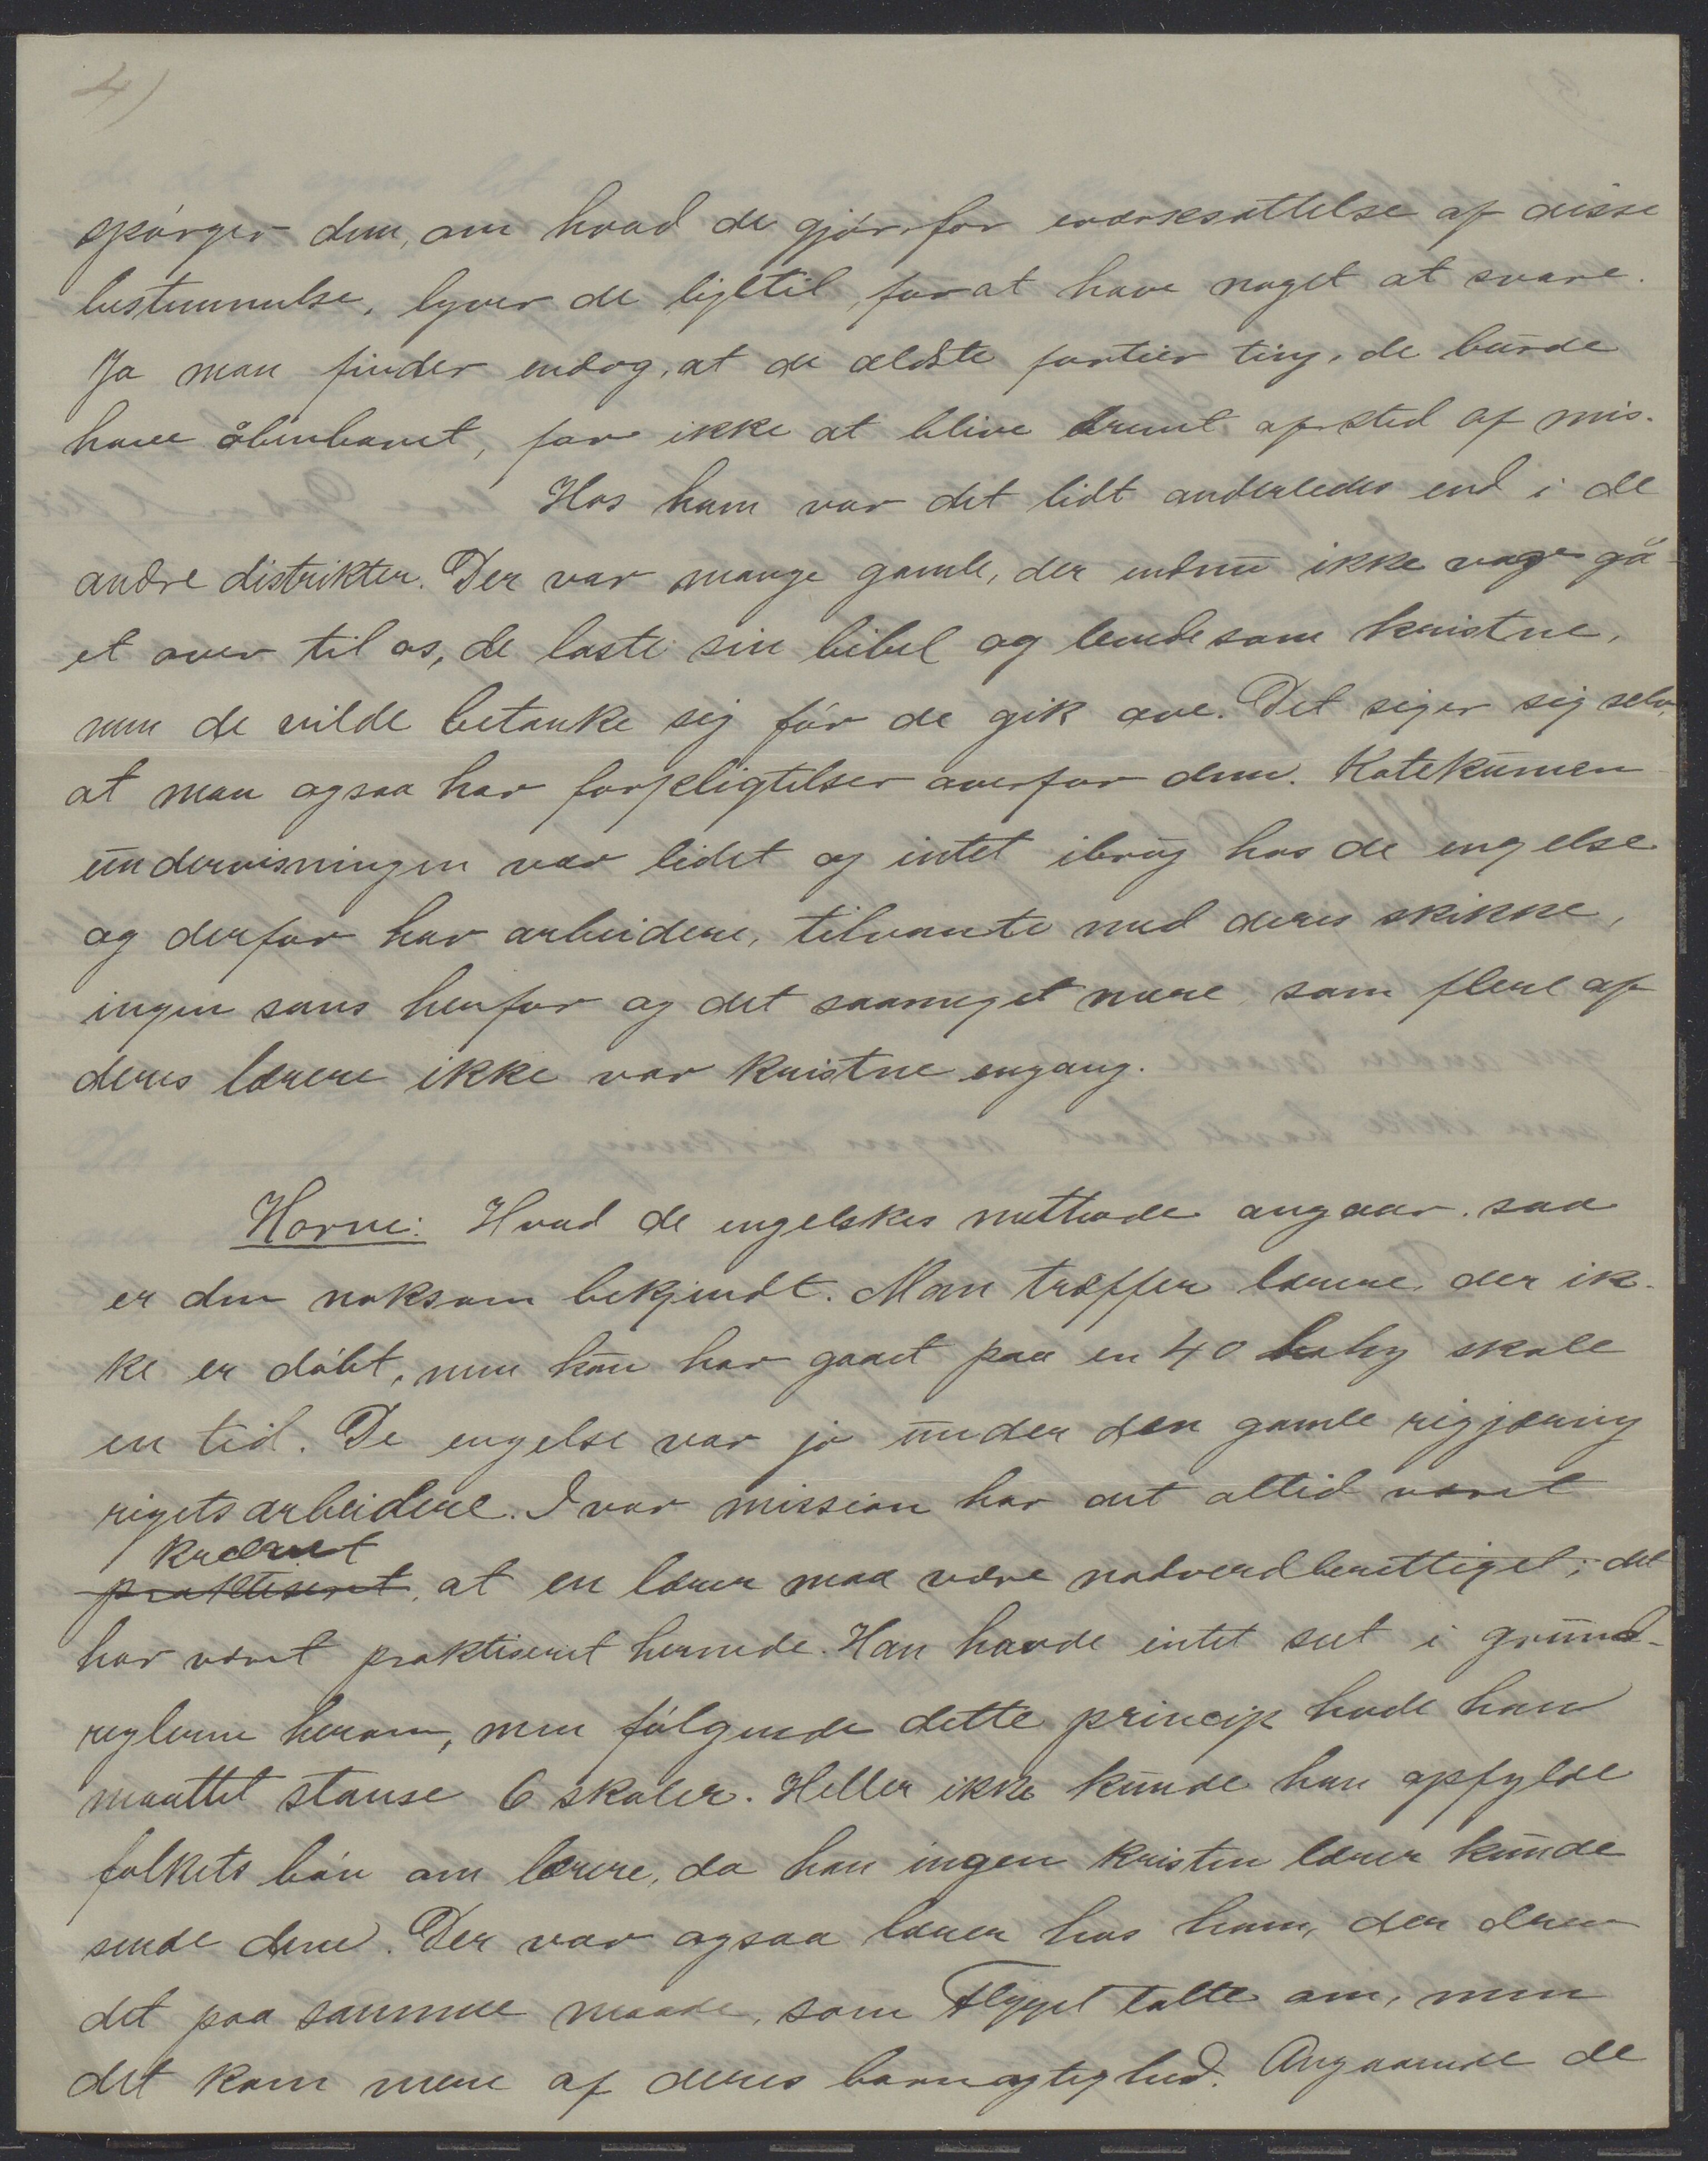 4)
spörger dem, om hvad de gjör for iverksættelse af disse
bestemmelse, lyver de ligetil, for at have noget at svare.
Ja man finder endog, at de ældste fortier ting, de burde
have åbenbaret, for ikke at blive drevet afsted af mis.
Hos ham var det lidt anderledes end i de
andre distrikter. Der var mange gamle, der endnu ikke var gå-
et over til os, de læste sin bibel og levede som kristne,
men de vilde betænke sig för de gik over. Det siger sig selv,
at man ogsaa har forpligtelser overfor dem. Katekumen
undervisningen var lidet og intet ibrug hos de engelse
og derfor har arbeidere, tilvante med deres skikke,
ingen sans herfor og det saameget mere, som flere af
deres lærere ikke var kristne engang.
Horne: Hvad de engelskes methode angaar, saa
er den noksom bekjendt. Man træffer lærere, der ik-
ke er döbt, men kun har gaaet paa en 40 baby skole
en tid. De engelse var jo under den gamle regjering
rigets arbeidere. I vor mission har det altid været
krævet
praktiseret, at en lærer maa være nadverdberettiget; det
har været praktiseret hernede. Han havde intet seet i grund-
reglerne herom, men fölgende dette princip havde han
maattet stanse 6 skoler. Heller ikke kunde han opfylde
folkets bön om lærere, da han ingen kristen lærer kunde
sende dem. Der var ogsaa lærer hos ham, der drev
det paa samme maade, som Flygel talte om, men
det kom mere af deres barnagtighed. Angaaende de